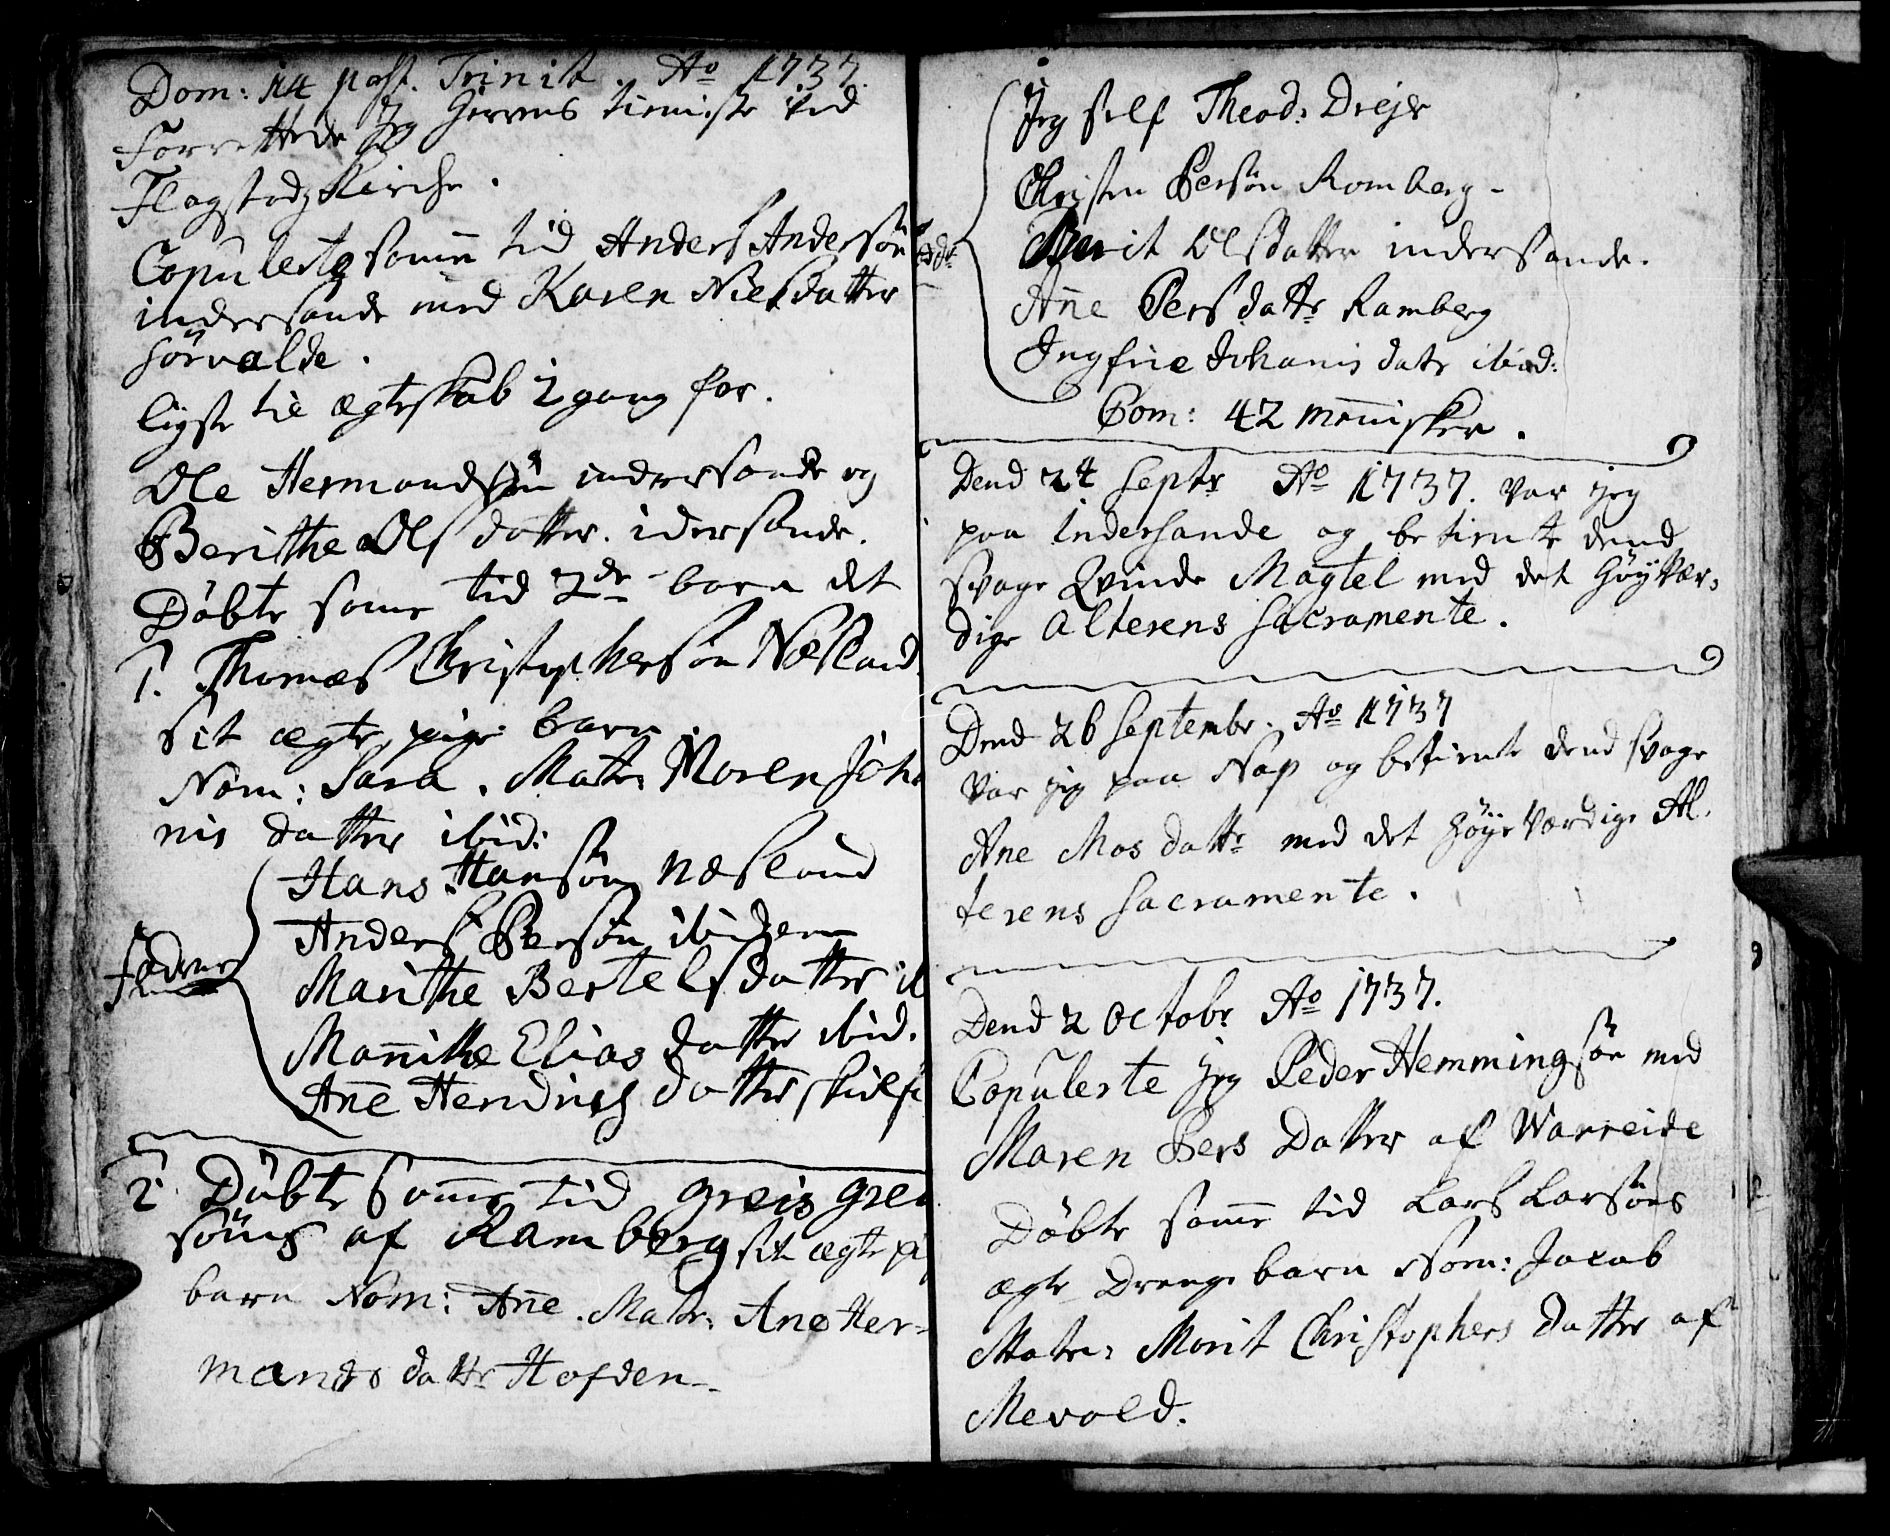 Dom: 14 post. Trinit. Ao 1737.
Forrettede Jeg Herrens tieniste ved
Flagstads Kirche.
Copulerte somme tid Anders Andersøn
indersande med Karen Niels datter
Sørvalde.
ligste tie ægteskab 1 gang for.
Ole Hermandsøn indersande og
Berithe Ols datter. idersande.
Døbte some tid 2de barn det
1. Thomæs Christophersøn Næsland
sit ægte pige barn
Nom: Sara. Mater: Maren Joha
nis datter ibid:
Hans Hansøn Næsland
Anders Persøn ibidem
Fadrne
Marithe Bertels datter ib
Mannithe Elias datter ibid.
Ane Hendrichs datter skielf
2 Døbte somme tid greis grei
søns af Ramberg sit ægte pi
barn Nom: Ane. Mater: Ane Her-
mands dattr Hofden.
Jeg self Theod: Drejer
Christen Persøn Romberg -
Berit Olsdatter indersande.
Ane Pers dattr Ramberg
Ingfrie Johanis datr ibid:
Com: 42 mennisker.
Dend 24 Septr Ao 1737. var jeg
paa indersande og betiente dend
svage Qvinde Magtel med det Høyvær,
dige Alterens Sacramente.
Dend 26 Septembr. Ao 1737
var jeg paa Nap og betiente dend svage
Ane Mos dattr med det Høyeværdige Al,
terens Sacramente.
Dend 2 Octobr Ao 1737.
Copulerte jeg Peder Hemmingsøn med
Maren Pers Datter af Warreide
Døbte some tid Lars Larsøns
ægte Drenge barn Nom: Jacob
Mater: Morit Christophers Datter af
Mevold.